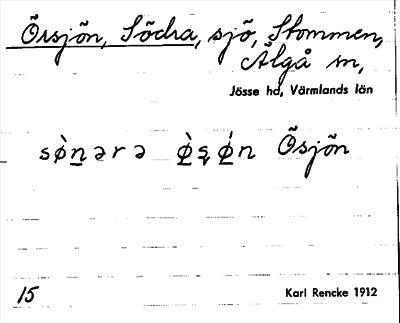 Örsjön, Södra, sjö, Stommen,
Älgå sn,
Jösse hd, Värmlands län
sø̀nərə ø̀şǿn Ösjön
15
Karl Rencke 1912